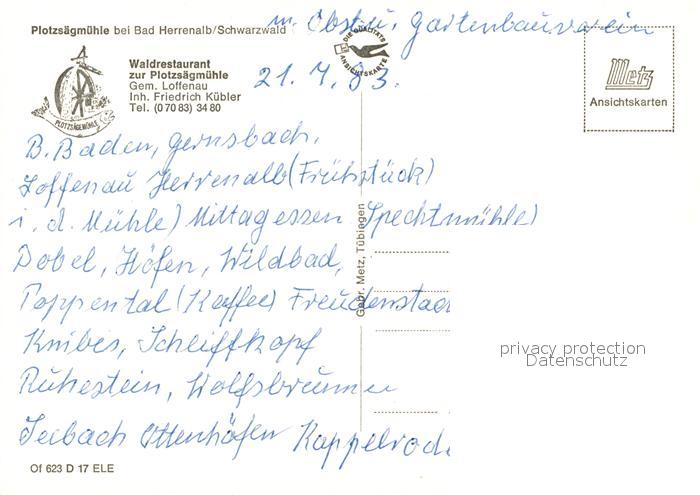 Plotzsägmühle bei Bad Herrenalb/Schwarzwald
m. Obst u. Gartenbauverein
DIE QUALITÄTS ANSICHTSKARTE
Metz
Ansichtskarten
Waldrestaurant
zur Plotzsägmühle
Gem. Loffenau
Inh. Friedrich Kübler
Tel. (0 70 83) 34 80
PLOTZSÄGEMÜHLE
21. 4. 83.
B. Baden, Gernsbach,
Loffenau Herrenalb (Frühstück)
i. d. Mühle) Mittagessen (Spechtmühle)
Dobel, Höfen, Wildbad,
Poppental (Kaffee) Freudenstad
Knibes, Schliffkopf
Ruhestein, Wolfsbrunnen
Seebach Ottenhöfen Kappelrode
Gebr. Metz, Tübingen
privacy protection
Datenschutz
Of 623 D 17 ELE